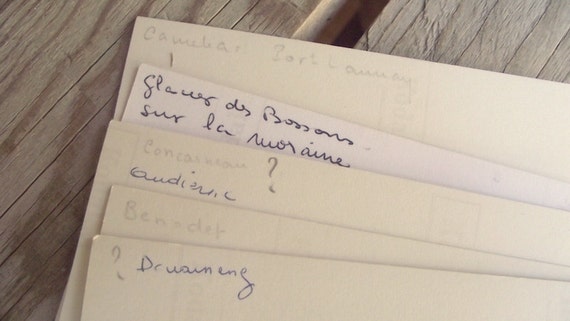 Port Launay
Glacier des Bossons
sur la moraine
Concarneau ?
Audierne
Benodet
? Douarnenez